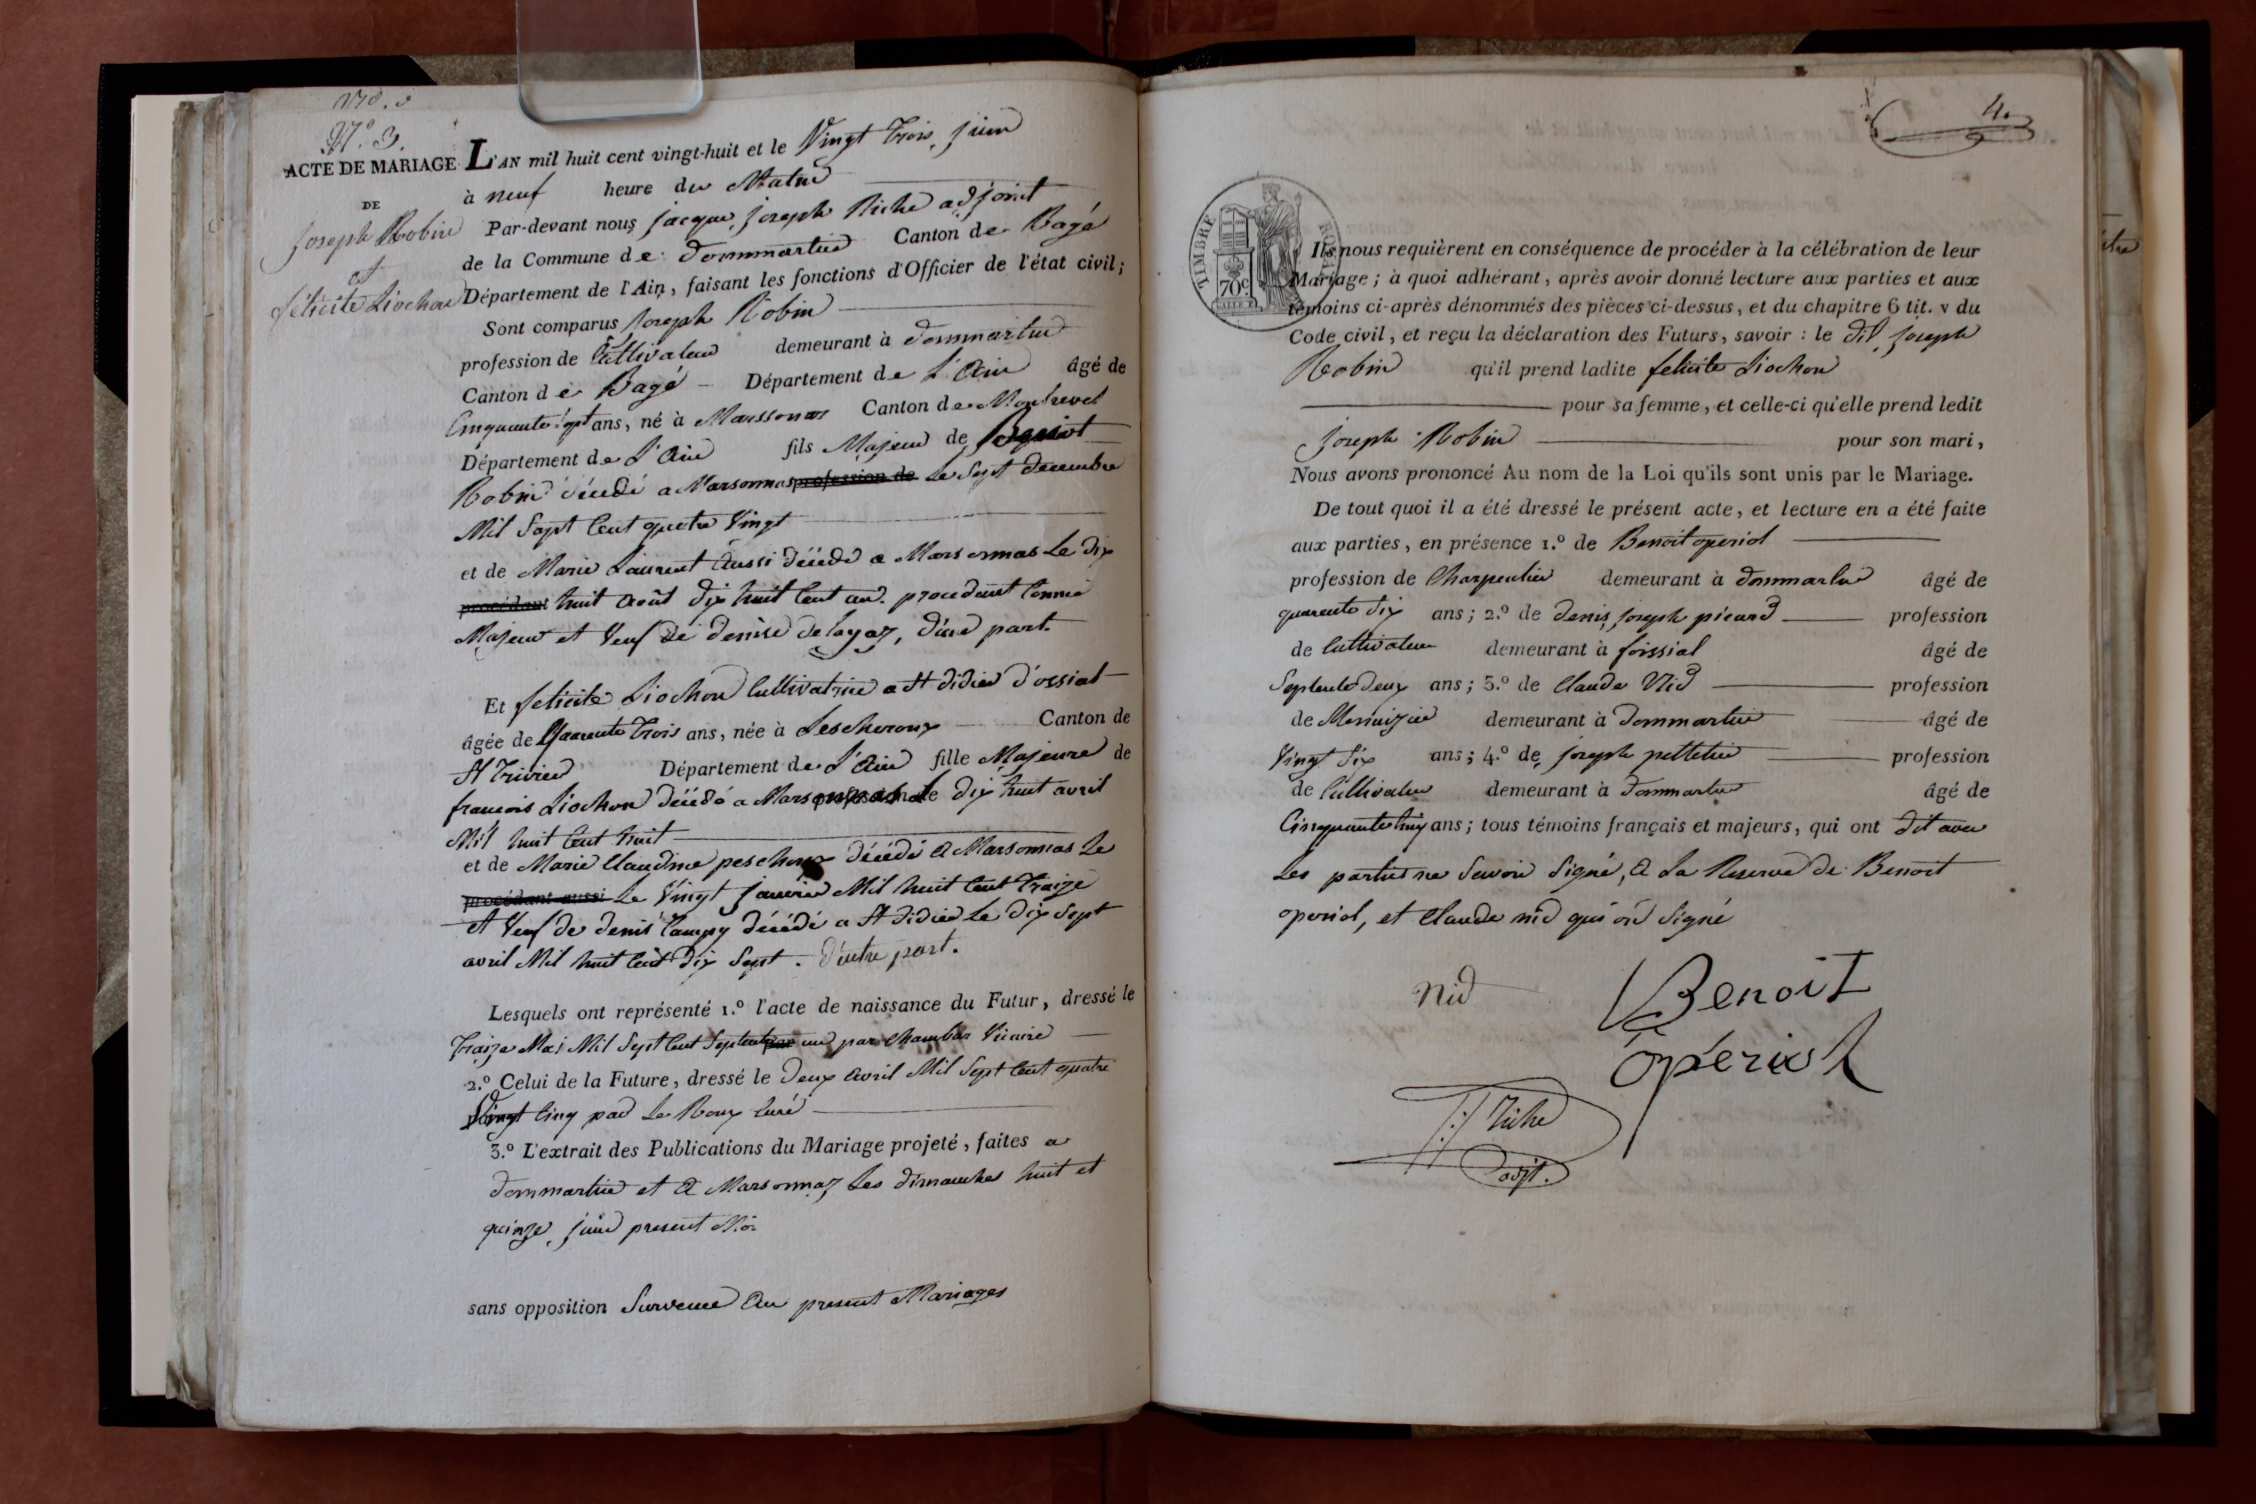 N° 3.
ACTE DE MARIAGE
DE
joseph Robin
et
félicité Liochon
L'AN mil huit cent vingt-huit et le Vingt Trois, juin
à neuf heure du Matin
Par-devant nous jacque, joseph Riche adjoint
de la Commune de Dommartin Canton de Bagé
Département de l'Ain, faisant les fonctions d'Officier de l'état civil;
Sont comparus Joseph Robin
profession de Cultivateur demeurant à Dommartin
Canton de Bagé Département de L'Ain âgé de
Cinquante sept ans, né à Marssonas Canton de Montrevel
Département de L'Ain fils Majeur de
Robin décédé a Marsonnas profession de Le Sept decembre
Mil Sept Cent quatre Vingt
et de Marie Laurent Aussi décédé a Marsonnas Le dix
procédant huit Août dix huit Cent un. procedant Comme
Majeur et Veuf de denise delayaz, d'une part.
Et felicité Liochon Cultivatrice a St didier d'ossiat
âgée de Quarente Trois ans, née à Lescheroux Canton de
St Trivier Département de L'Ain fille Majeure de
francois Liochon décédé a Marsonnas Le dix huit avril
Mil huit Cent huit
et de Marie Claudine peschoux décédé A Marsonnas Le
procédant aussi Le Vingt janvier Mil huit Cent Traize
et Veuf de denis Campy décédé a St didier Le dix Sept
avril Mil huit Cent dix Sept. d'autre part.
Lesquels ont représenté 1.° l'acte de naissance du Futur, dressé le
Traize Mai Mil Sept Cent Septente par un par Chambas Vicaire
2.° Celui de la Future, dressé le deux Avril Mil Sept Cent quatre
Vingt Cinq par Le Roux Curé
3.° L'extrait des Publications du Mariage projeté, faites a
Dommartin et A Marsonnaz Les dimanches huit et
quinze, juin present Moi
sans opposition Survenue Au present Mariages
4.
TIMBRE ROYAL
70c
Ils nous requièrent en conséquence de procéder à la célébration de leur
Mariage; à quoi adhérant, après avoir donné lecture aux parties et aux
témoins ci-après dénommés des pièces ci-dessus, et du chapitre 6 tit. v du
Code civil, et reçu la déclaration des Futurs, savoir : le dit, Joseph
Robin qu'il prend ladite felicité Liochon
pour sa femme, et celle-ci qu'elle prend ledit
Joseph Robin pour son mari,
Nous avons prononcé Au nom de la Loi qu'ils sont unis par le Mariage.
De tout quoi il a été dressé le présent acte, et lecture en a été faite
aux parties, en présence 1.° de Benoit operiol
profession de Charpentier demeurant à Dommartin âgé de
quarente dix ans; 2.° de denis, joseph picard profession
de Cultivateur demeurant à foissiat âgé de
Septente deux ans; 3.° de Claude Nid profession
de Menuizier demeurant à Dommartin âgé de
Vingt Six ans; 4.° de, joseph pelletier profession
de Cultivateur demeurant à Dommartin âgé de
Cinquante huit ans; tous témoins français et majeurs, qui ont dit avec
Les parties ne Savoir Signé, A La Reserve de Benoit
operiol, et Claude nid qui on Signé
Nid
Benoit
opériol
J: J: Riche
adjt.